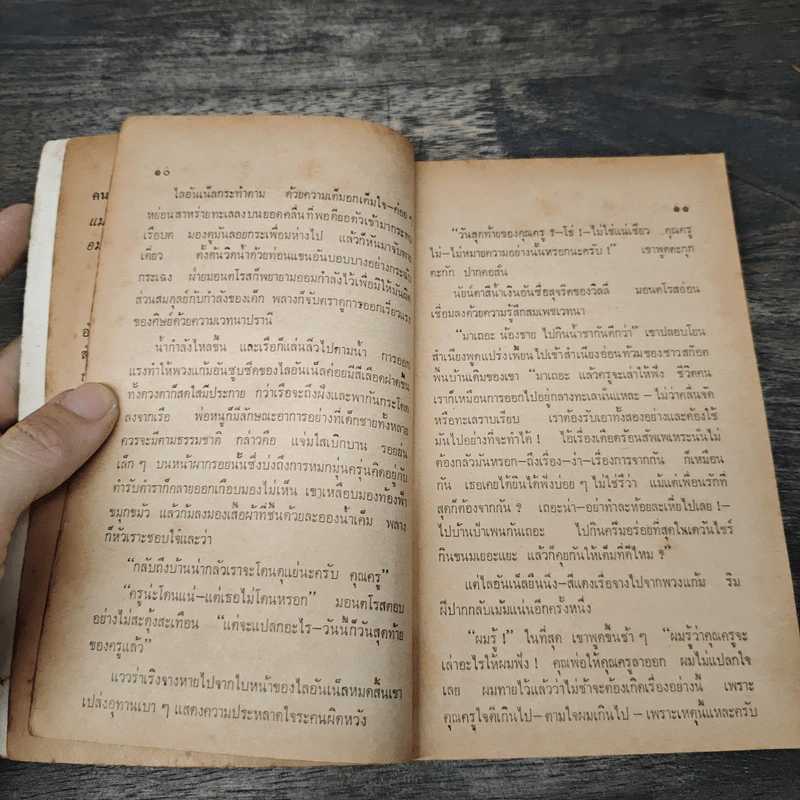 คน
๑๐
ไลอันเน็ลกระทำตาม ด้วยความเต็มอกเต็มใจ—ค่อย ๆ
หย่อนสาหร่ายทะเลลงบนยอดคลื่นที่พอดียอตัวเข้ามากระทบ
เรือบด มองดูมันลอยกระเพื่อมห่างไป แล้วก็หันมาจับพาย
เดี่ยว ตั้งต้นวิดน้ำด้วยท่อนแขนอันบอบบางอย่างกระฉับ
กระเฉง ฝ่ายมอนตโรสก็พยายามออมกำลังไว้เพื่อมิให้มันผิด
ส่วนสมดุลย์กับกำลังของเด็ก พลางก็จับตราดูการออกเรี่ยวแรง
ของศิษย์ด้วยความเวทนาปรานี
น้ำกำลังไหลขึ้น และเรือก็แล่นลิ่วไปตามน้ำ การออก
แรงทำให้พวงแก้มอันซูบซีดของไลอันเน็ลค่อยมีสีเลือดฝาดขึ้น
ทั้งดวงตาก็สุดใสมีประกาย กว่าเรือจะถึงฝั่งและพากันกระโดด
ลงจากเรือ พ่อหนูก็มีลักษณะอาการอย่างที่เด็กชายทั้งหลาย
ควรจะมีตามธรรมชาติ กล่าวคือ แจ่มใสเบิกบาน รอยย่น
เล็ก ๆ บนหน้าผากรอยนั้นซึ่งบ่งถึงการหมกมุ่นครุ่นคิดอยู่กับ
ตำรับตำราก็คลายออกเกือบมองไม่เห็น เขาเหลือบมองท้องฟ้า
ขมุกขมัว แล้วก้มลงมองเสื้อผ้าที่ชื้นด้วยละอองน้ำเค็ม พลาง
ก็หัวเราะชอบใจและว่า
“กลับถึงบ้านน่ากลัวเราจะโดนดุแย่นะครับ คุณครู”
“ครูน่ะโดนแน่—แต่เธอไม่โดนหรอก” มอนตโรสตอบ
อย่างไม่สะดุ้งสะเทือน “แต่จะแปลกอะไร—วันนี้ก็วันสุดท้าย
ของครูแล้ว”
แววร่าเริงจางหายไปจากใบหน้าของไลอันเน็ลหมดสิ้นเขา
เปล่งอุทานเบา ๆ แสดงความประหลาดใจระคนผิดหวัง
๑๑
“วันสุดท้ายของคุณครู ?—โธ่ !—ไม่ใช่แน่เชียว คุณครู
ไม่—ไม่หมายความอย่างนั้นหรอกนะครับ !” เขาพูดตะกุก
ตะกัก ปากคอสั่น
นัยน์ตาสีน้ำเงินอันซื่อสุจริตของวิลลี่ มอนตโรสอ่อน
เชื่อมลงด้วยความรู้สึกสมเพชเวทนา
“มาเถอะ น้องชาย ไปกินน้ำชากันดีกว่า” เขาปลอบโยน
สำเนียงพูดแปร่งเพี้ยนไปเข้าสำเนียงอ่อนท้วมของชาวสก๊อต
พื้นบ้านเดิมของเขา “มาเถอะ แล้วครูจะเล่าให้ฟัง ชีวิตคน
เราก็เหมือนการออกไปอยู่กลางทะเลนั่นแหละ—ไม่ว่าคลื่นจัด
หรือทะเลราบเรียบ เราต้องรับเอาทั้งสองอย่างและต้องใช้
มันไปอย่างที่จะทำได้ ! ไอ้เรื่องเดือดร้อนสัพเพเหระนั่นไม่
ต้องกลัวมันหรอก—ถึงเรื่อง—ง่า—เรื่องการจากกัน ก็เหมือน
กัน เธอเคยได้ยินได้ฟังบ่อย ๆ ไม่ใช่รึว่า แม้แต่เพื่อนรักที่
สุดก็ต้องจากกัน ? เถอะน่า—อย่าทำละห้อยละเหี่ยไปเลย !—
ไปบ้านป้าเพนกันเถอะ ไปกินครีมอร่อยที่สุดในเดวันไชร์
กินขนมเยอะแยะ แล้วก็คุยกันให้เต็มที่ดีไหม ?”
แต่ไลอันเน็ลยืนนิ่ง—สีแดงเรื่อจางไปจากพวงแก้ม ริม
ฝีปากกลับเม้มแน่นอีกครั้งหนึ่ง
“ผมรู้ !” ในที่สุด เขาพูดขึ้นช้า ๆ “ผมรู้ว่าคุณครูจะ
เล่าอะไรให้ผมฟัง ! คุณพ่อให้คุณครูลาออก ผมไม่แปลกใจ
เลย ผมทายไว้แล้วว่าไม่ช้าจะต้องเกิดเรื่องอย่างนี้ เพราะ
คุณครูใจดีเกินไป—ตามใจผมเกินไป—เพราะเหตุนี้แหละครับ